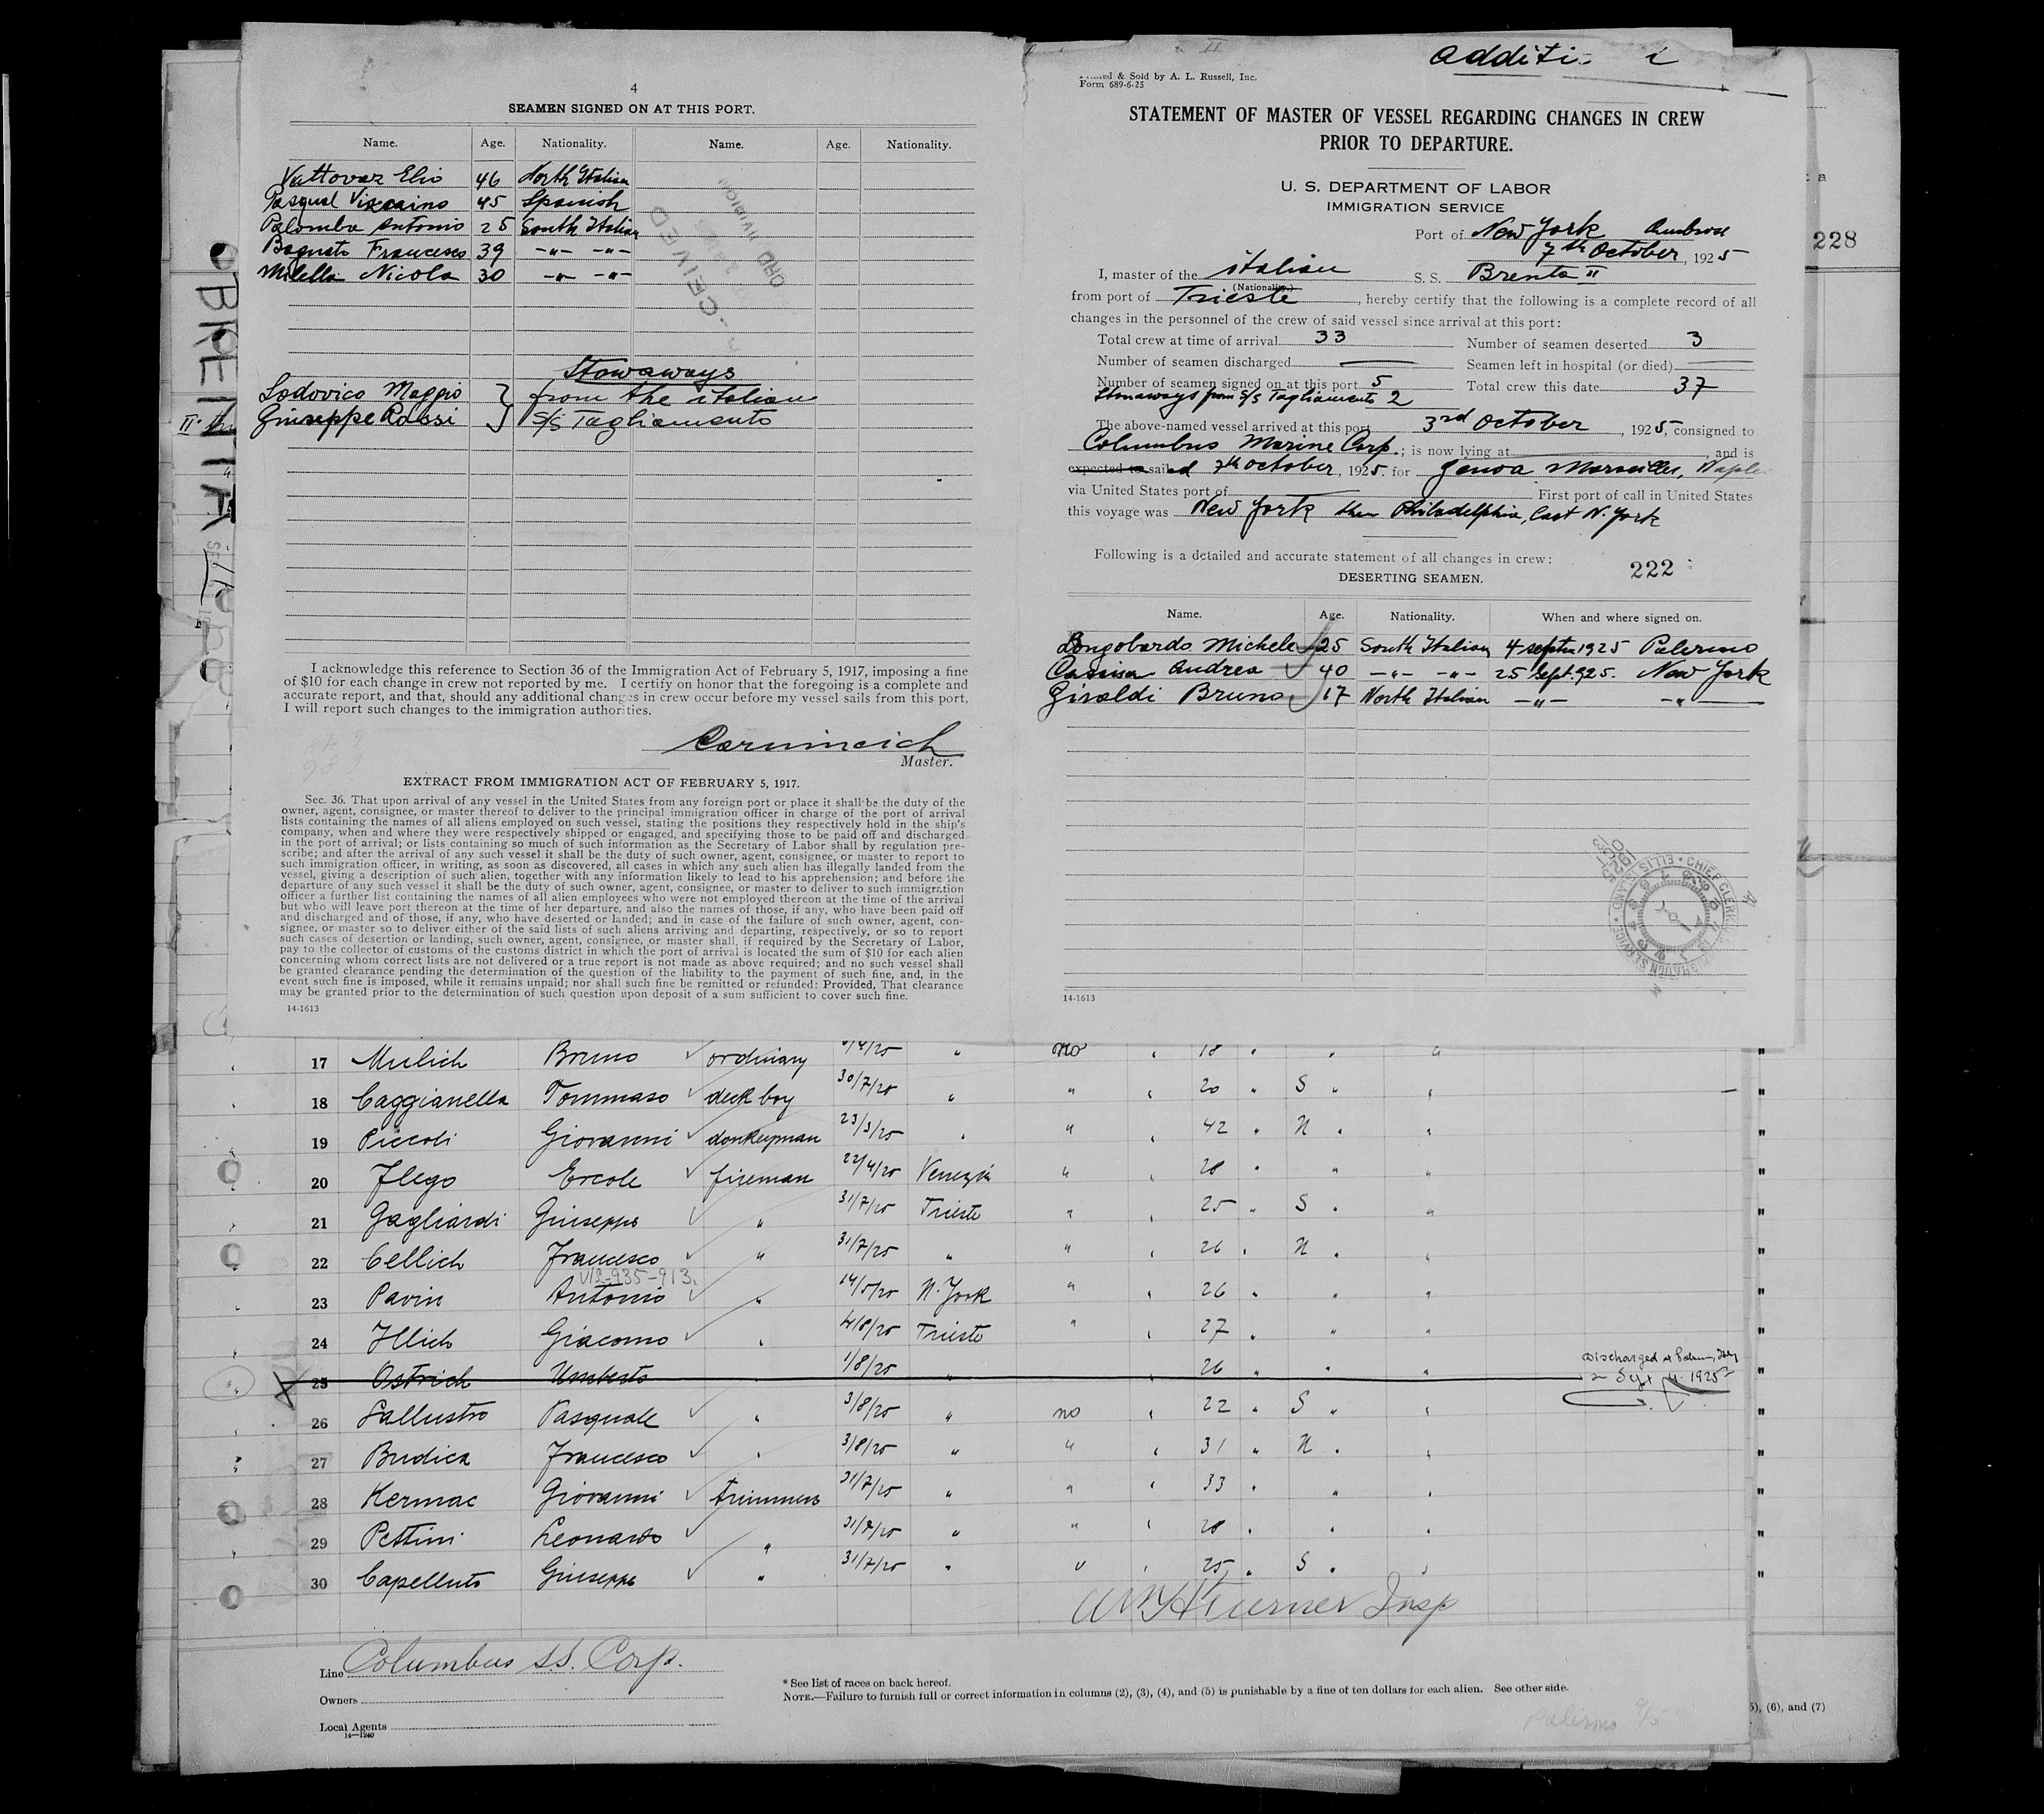 4
SEAMEN SIGNED ON AT THIS PORT.
Name. Age. Nationality. Name. Age. Nationality.
Vattovaz Elio 46 North Italian
Pasqual Viscaino 45 Spanish
Palomba Antonio 25 South Italian
Francesco 39 -"- -"-
Milella Nicola 30 -"- -"-
Stowaways
Lodovico Maggio } from the italian
Giuseppe Rossi } S/S Tagliamento
I acknowledge this reference to Section 36 of the Immigration Act of February 5, 1917, imposing a fine
of $10 for each change in crew not reported by me. I certify on honor that the foregoing is a complete and
accurate report, and that, should any additional changes in crew occur before my vessel sails from this port,
I will report such changes to the immigration authorities.
Master.
EXTRACT FROM IMMIGRATION ACT OF FEBRUARY 5, 1917.
Sec. 36. That upon arrival of any vessel in the United States from any foreign port or place it shall be the duty of the
owner, agent, consignee, or master thereof to deliver to the principal immigration officer in charge of the port of arrival
lists containing the names of all aliens employed on such vessel, stating the positions they respectively hold in the ship's
company, when and where they were respectively shipped or engaged, and specifying those to be paid off and discharged
in the port of arrival; or lists containing so much of such information as the Secretary of Labor shall by regulation pre-
scribe; and after the arrival of any such vessel it shall be the duty of such owner, agent, consignee, or master to report to
such immigration officer, in writing, as soon as discovered, all cases in which any such alien has illegally landed from the
vessel, giving a description of such alien, together with any information likely to lead to his apprehension; and before the
departure of any such vessel it shall be the duty of such owner, agent, consignee, or master to deliver to such immigration
officer a further list containing the names of all alien employees who were not employed thereon at the time of the arrival
but who will leave port thereon at the time of her departure, and also the names of those, if any, who have been paid off
and discharged and of those, if any, who have deserted or landed; and in case of the failure of such owner, agent, con-
signee, or master so to deliver either of the said lists of such aliens arriving and departing, respectively, or so to report
such cases of desertion or landing, such owner, agent, consignee, or master shall, if required by the Secretary of Labor,
pay to the collector of customs of the customs district in which the port of arrival is located the sum of $10 for each alien
concerning whom correct lists are not delivered or a true report is not made as above required; and no such vessel shall
be granted clearance pending the determination of the question of the liability to the payment of such fine, and, in the
event such fine is imposed, while it remains unpaid; nor shall such fine be remitted or refunded: Provided, That clearance
may be granted prior to the determination of such question upon deposit of a sum sufficient to cover such fine.
14-1613
& Sold by A. L. Russell, Inc.
Form 689-6-25
STATEMENT OF MASTER OF VESSEL REGARDING CHANGES IN CREW
PRIOR TO DEPARTURE.
U. S. DEPARTMENT OF LABOR
IMMIGRATION SERVICE
Port of New York Ambrose
7th October, 1925
I, master of the italian S. S. Brenta II
(Nationality.)
from port of Trieste, hereby certify that the following is a complete record of all
changes in the personnel of the crew of said vessel since arrival at this port:
Total crew at time of arrival 33 Number of seamen deserted 3
Number of seamen discharged — Seamen left in hospital (or died) —
Number of seamen signed on at this port 5 Total crew this date 37
Stowaways from S/S Tagliamento 2
The above-named vessel arrived at this port 3rd October, 1925, consigned to
Columbus Marine Corp.; is now lying at , and is
expected to sailed 7th October, 1925. for Genoa Marseilles, Naples
via United States port of First port of call in United States
this voyage was New York then Philadelphia, Last N. York
Following is a detailed and accurate statement of all changes in crew:
222
DESERTING SEAMEN.
Name. Age. Nationality. When and where signed on.
Longobardo Michele 25 South Italian 4 septem 1925 Palermo
Andrea 40 -"- -"- 25 Sept. 925. New York
Giraldi Bruno 17 North Italian -"- -"-
14-1613
228
BRENTA
17 Mulich Bruno ordinary " no " 18 " " "
18 Caggianella Tommaso deck boy 30/7/25 " " " 20 " S " "
19 Piccoli Giovanni donkeyman 23/3/25 " " " 42 " N " "
20 Flego Ercole fireman 22/4/25 Venezia " " 28 " " "
21 Gagliardi Giuseppe " 31/7/25 Trieste " " 25 " S " "
22 Cellich Francesco " 31/7/25 " " " 26 " N " "
23 Pavin Antonio " 14/5/25 N. York " " 26 " " "
24 Illich Giacomo " 4/8/25 Trieste " " 27 " " "
25 Ostrich Umberto 1/8/25 " 26 " " " Discharged at Palermo, Italy
Sept 4. 1925
26 Sallustro Pasquale " 3/8/25 " no " 22 " S " "
27 Budica Francesco " 3/8/25 " " " 31 " N " "
28 Kermac Giovanni trimmers 31/7/25 " " " 33 " " "
29 Pettini Leonardo " 31/7/25 " " " 28 " " "
30 Capelluto Giuseppe " 31/7/25 " " " 25 " S " "
Wm H Turner Insp
Line Columbus S.S. Corp.
Owners
Local Agents
14—1240
* See list of races on back hereof.
NOTE.—Failure to furnish full or correct information in columns (2), (3), (4), and (5) is punishable by a fine of ten dollars for each alien. See other side.
Palermo 9/5
(6), and (7)